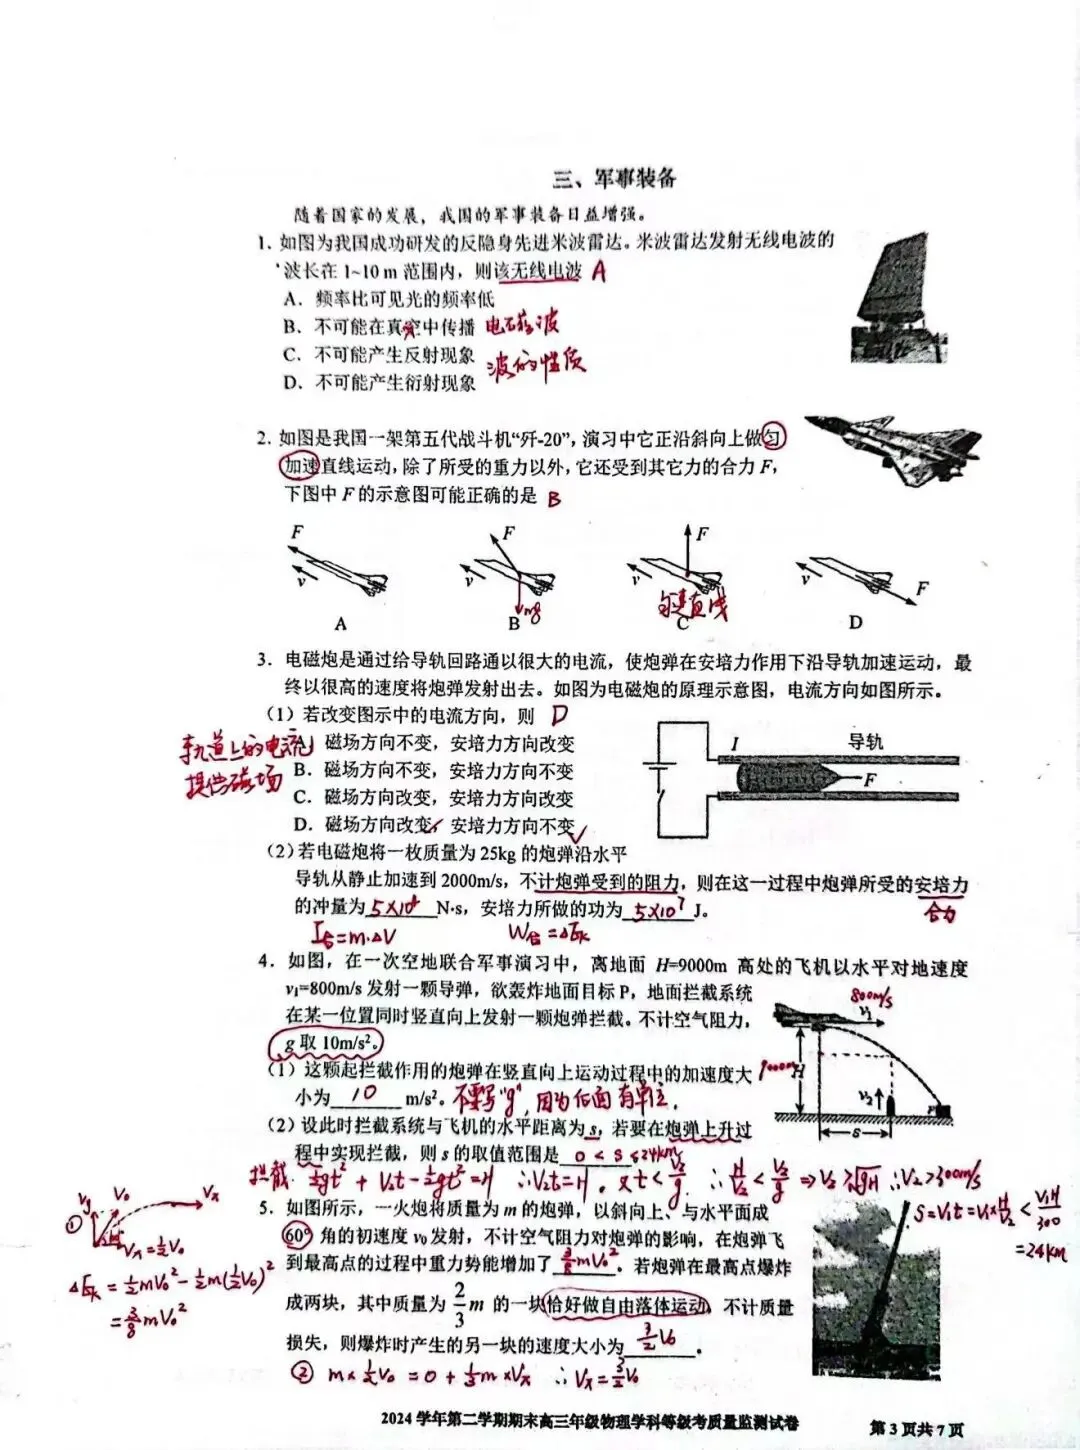 三、军事装备
随着国家的发展，我国的军事装备日益增强。
1. 如图为我国成功研发的反隐身先进米波雷达。米波雷达发射无线电波的
波长在 1~10 m 范围内，则该无线电波 A
A．频率比可见光的频率低
B．不可能在真空中传播 电磁波
C．不可能产生反射现象
波的性质
D．不可能产生衍射现象
2. 如图是我国一架第五代战斗机“歼-20”，演习中它正沿斜向上做匀
加速直线运动，除了所受的重力以外，它还受到其它力的合力 F，
下图中 F 的示意图可能正确的是 B
F v A
F v mg B
F v 匀速直线 C
v F D
3. 电磁炮是通过给导轨回路通以很大的电流，使炮弹在安培力作用下沿导轨加速运动，最
终以很高的速度将炮弹发射出去。如图为电磁炮的原理示意图，电流方向如图所示。
（1）若改变图示中的电流方向，则 D
A．磁场方向不变，安培力方向改变
B．磁场方向不变，安培力方向不变
C．磁场方向改变，安培力方向改变
D．磁场方向改变，安培力方向不变
轨道上的电流
提供磁场
I 导轨
F
（2）若电磁炮将一枚质量为 25kg 的炮弹沿水平
导轨从静止加速到 2000m/s，不计炮弹受到的阻力，则在这一过程中炮弹所受的安培力
的冲量为 5×10⁴ N·s，安培力所做的功为 5×10⁷ J。 合力
I合=m·ΔV W合=ΔEk
4. 如图，在一次空地联合军事演习中，离地面 H=9000m 高处的飞机以水平对地速度
v₁=800m/s 发射一颗导弹，欲轰炸地面目标 P，地面拦截系统
在某一位置同时竖直向上发射一颗炮弹拦截。不计空气阻力，
g 取 10m/s²。
（1）这颗起拦截作用的炮弹在竖直向上运动过程中的加速度大
小为 10 m/s²。不要写"g"，因为后面有单位．
（2）设此时拦截系统与飞机的水平距离为 s，若要在炮弹上升过
程中实现拦截，则 s 的取值范围是 0 < s ≤ 24km
800m/s
v₁
9000m H
v₂
P
s
拦截：½gt² + V₂t - ½gt² = H ∴V₂t=H，又t<V₂/g ∴H/V₂<V₂/g ⇒V₂>√gH ∴V₂>300m/s
S=V₁t=V₁×H/V₂<V₁H/300
=24km
5. 如图所示，一火炮将质量为 m 的炮弹，以斜向上、与水平面成
60° 角的初速度 v₀ 发射，不计空气阻力对炮弹的影响，在炮弹飞
到最高点的过程中重力势能增加了 3/8mV₀² 。若炮弹在最高点爆炸
成两块，其中质量为 2/3 m 的一块恰好做自由落体运动，不计质量
损失，则爆炸时产生的另一块的速度大小为 3/2V₀ 。
① Vy V₀ Vx
Vx=½V₀
ΔEk=½mV₀²-½m(½V₀)²
=3/8mV₀²
② m×½V₀ = 0 + ⅓m×Vx ∴Vx=3/2V₀
2024 学年第二学期期末高三年级物理学科等级考质量监测试卷
第 3 页共 7 页